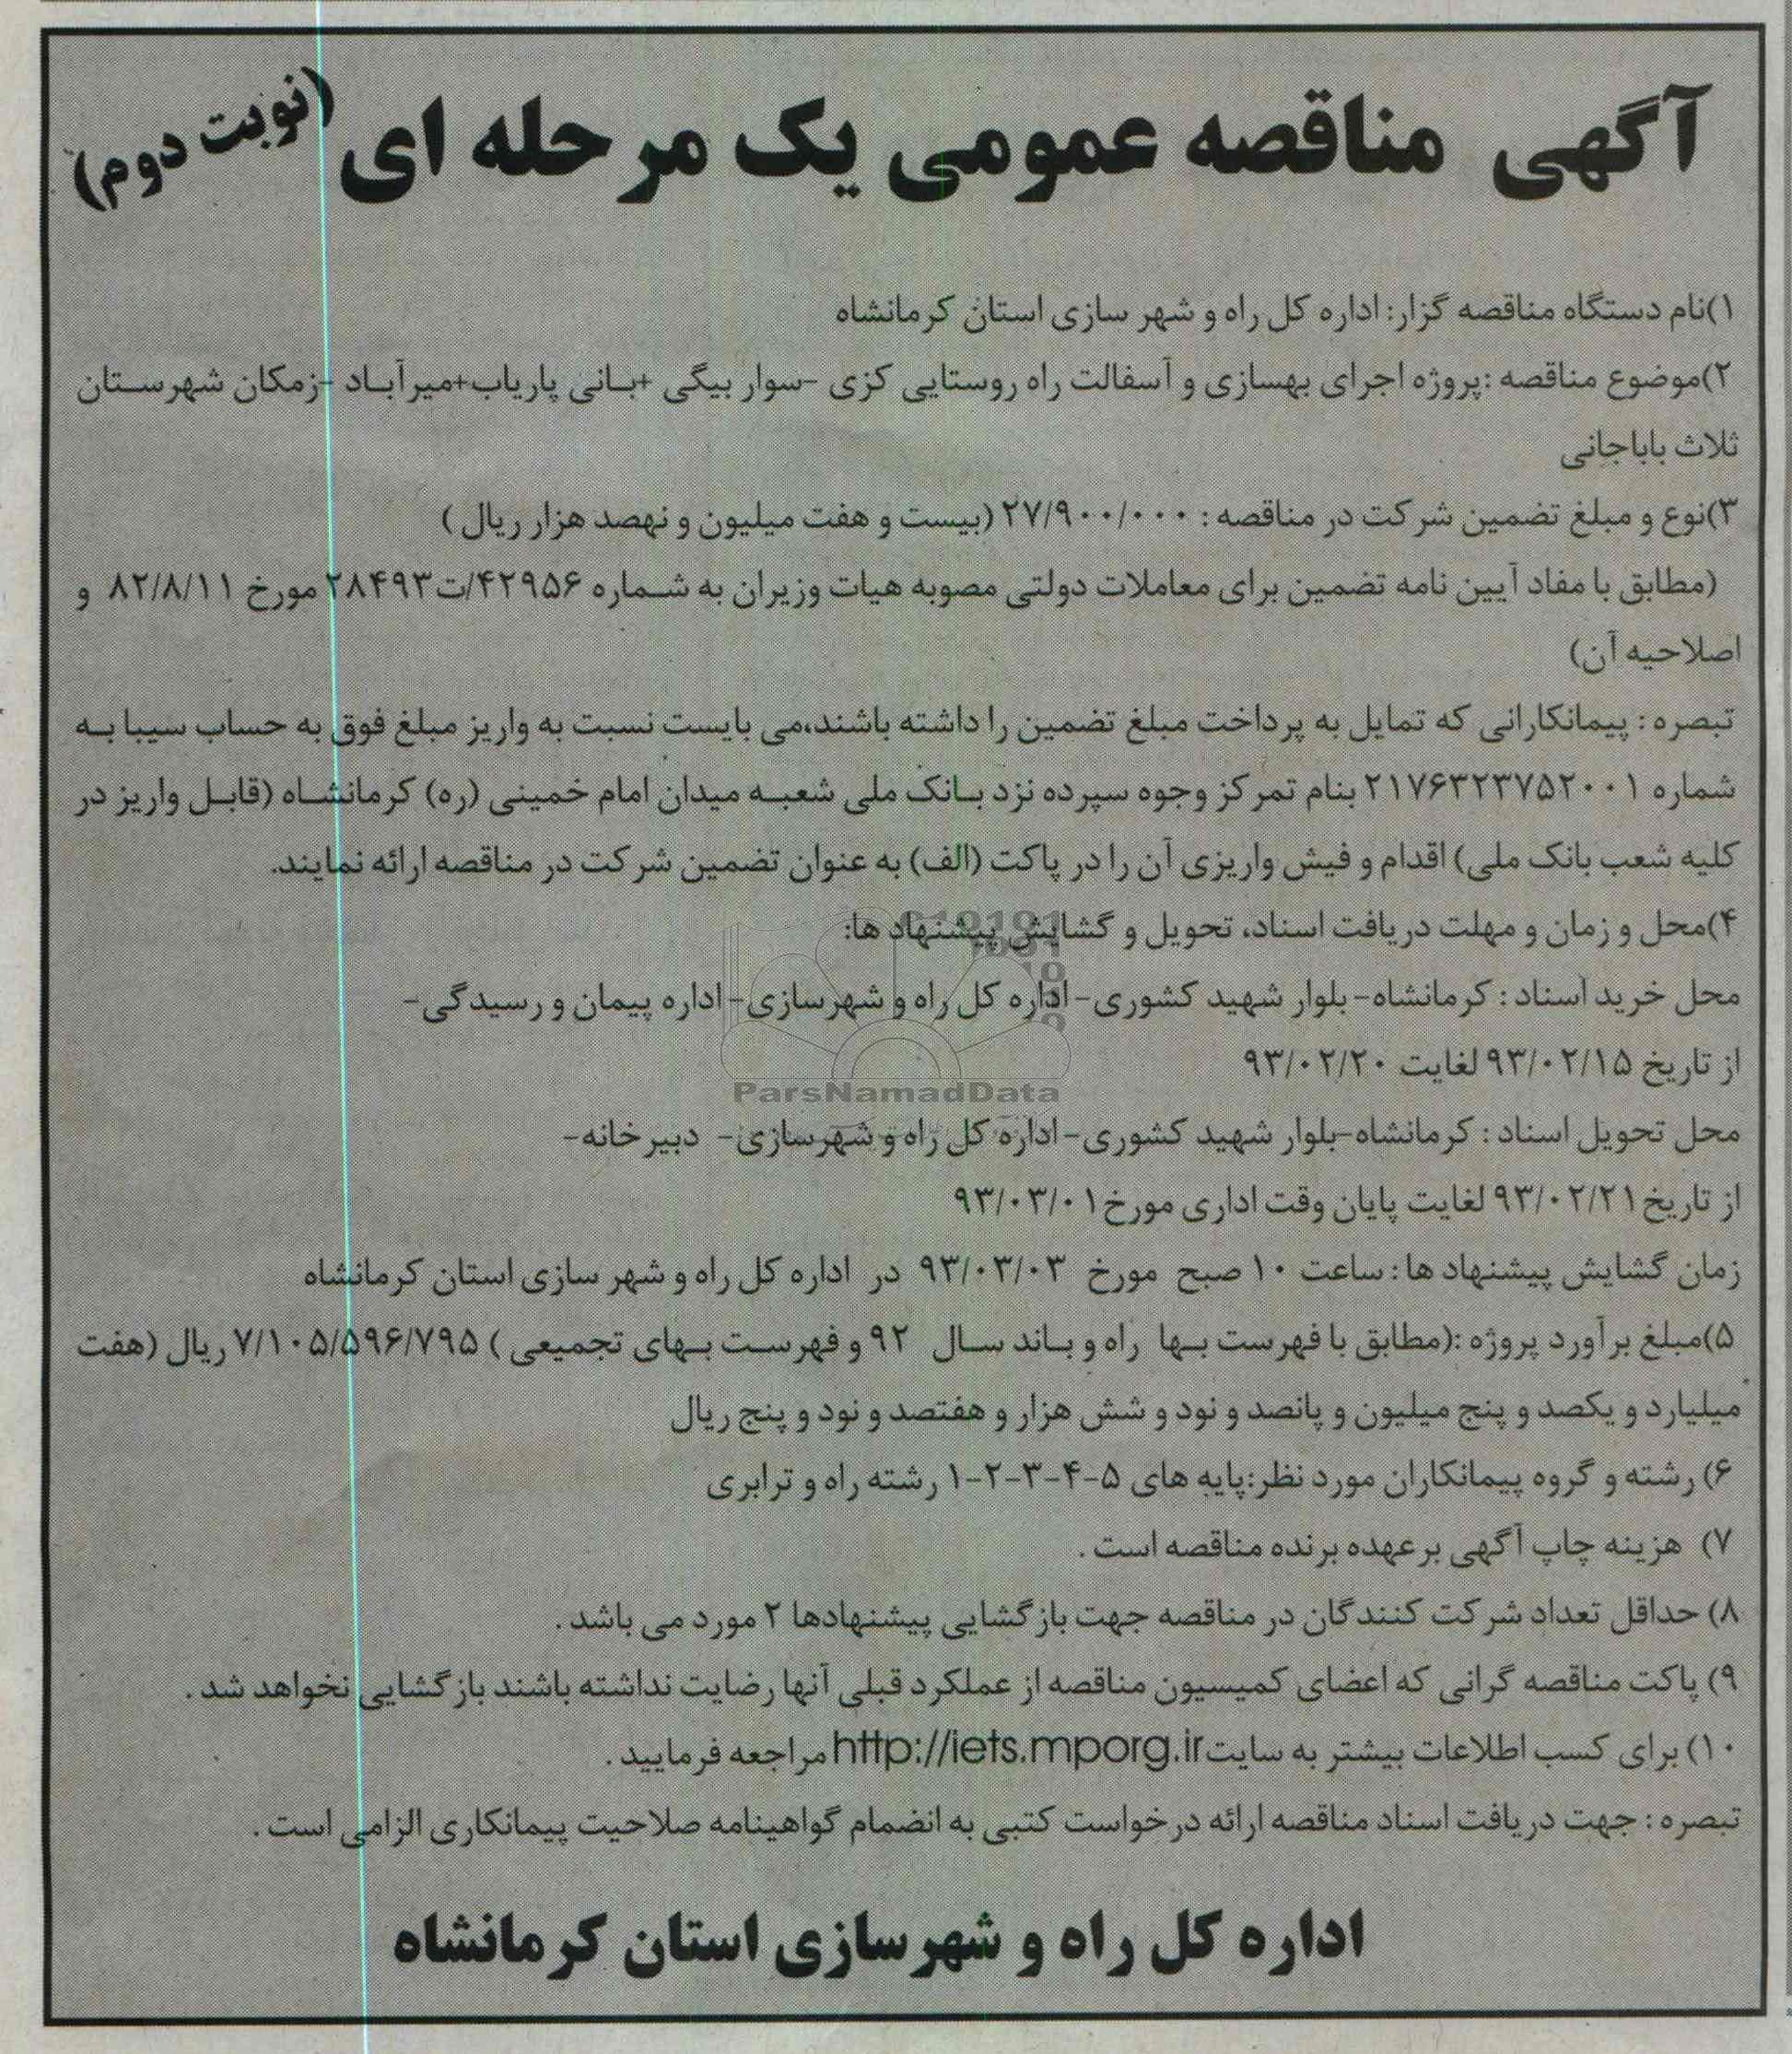 آگهی مناقصه عمومی یک مرحله ای (نوبت دوم)
۱)نام دستگاه مناقصه گزار: اداره کل راه و شهر سازی استان کرمانشاه
۲)موضوع مناقصه :پروژه اجرای بهسازی و آسفالت راه روستایی کزی -سوار بیگی +بانی پاریاب+میرآباد -زمکان شهرستان
ثلاث باباجانی
۳)نوع و مبلغ تضمین شرکت در مناقصه : ۲۷/۹۰۰/۰۰۰ (بیست و هفت میلیون و نهصد هزار ریال )
(مطابق با مفاد آیین نامه تضمین برای معاملات دولتی مصوبه هیات وزیران به شماره ۴۲۹۵۶/ت۲۸۴۹۳ مورخ ۸۲/۸/۱۱ و
اصلاحیه آن)
تبصره : پیمانکارانی که تمایل به پرداخت مبلغ تضمین را داشته باشند،می بایست نسبت به واریز مبلغ فوق به حساب سیبا به
شماره ۲۱۷۶۳۲۳۷۵۲۰۰۱ بنام تمرکز وجوه سپرده نزد بانک ملی شعبه میدان امام خمینی (ره) کرمانشاه (قابل واریز در
کلیه شعب بانک ملی) اقدام و فیش واریزی آن را در پاکت (الف) به عنوان تضمین شرکت در مناقصه ارائه نمایند.
۴)محل و زمان و مهلت دریافت اسناد، تحویل و گشایش پیشنهاد ها:
محل خرید اسناد : کرمانشاه- بلوار شهید کشوری- اداره کل راه و شهرسازی- اداره پیمان و رسیدگی-
از تاریخ ۹۳/۰۲/۱۵ لغایت ۹۳/۰۲/۲۰
ParsNamadData
محل تحویل اسناد : کرمانشاه-بلوار شهید کشوری- اداره کل راه و شهرسازی- دبیرخانه-
از تاریخ ۹۳/۰۲/۲۱ لغایت پایان وقت اداری مورخ ۹۳/۰۳/۰۱
زمان گشایش پیشنهاد ها : ساعت ۱۰ صبح مورخ ۹۳/۰۳/۰۳ در اداره کل راه و شهر سازی استان کرمانشاه
۵)مبلغ برآورد پروژه :(مطابق با فهرست بها راه و باند سال ۹۲ و فهرست بهای تجمیعی ) ۷/۱۰۵/۵۹۶/۷۹۵ ریال (هفت
میلیارد و یکصد و پنج میلیون و پانصد و نود و شش هزار و هفتصد و نود و پنج ریال
۶) رشته و گروه پیمانکاران مورد نظر:پایه های ۵-۴-۳-۲-۱ رشته راه و ترابری
۷) هزینه چاپ آگهی بر عهده برنده مناقصه است .
۸) حداقل تعداد شرکت کنندگان در مناقصه جهت بازگشایی پیشنهادها ۲ مورد می باشد .
۹) پاکت مناقصه گرانی که اعضای کمیسیون مناقصه از عملکرد قبلی آنها رضایت نداشته باشند بازگشایی نخواهد شد .
۱۰) برای کسب اطلاعات بیشتر به سایت http://iets.mporg.ir مراجعه فرمایید .
تبصره : جهت دریافت اسناد مناقصه ارائه درخواست کتبی به انضمام گواهینامه صلاحیت پیمانکاری الزامی است .
اداره کل راه و شهرسازی استان کرمانشاه